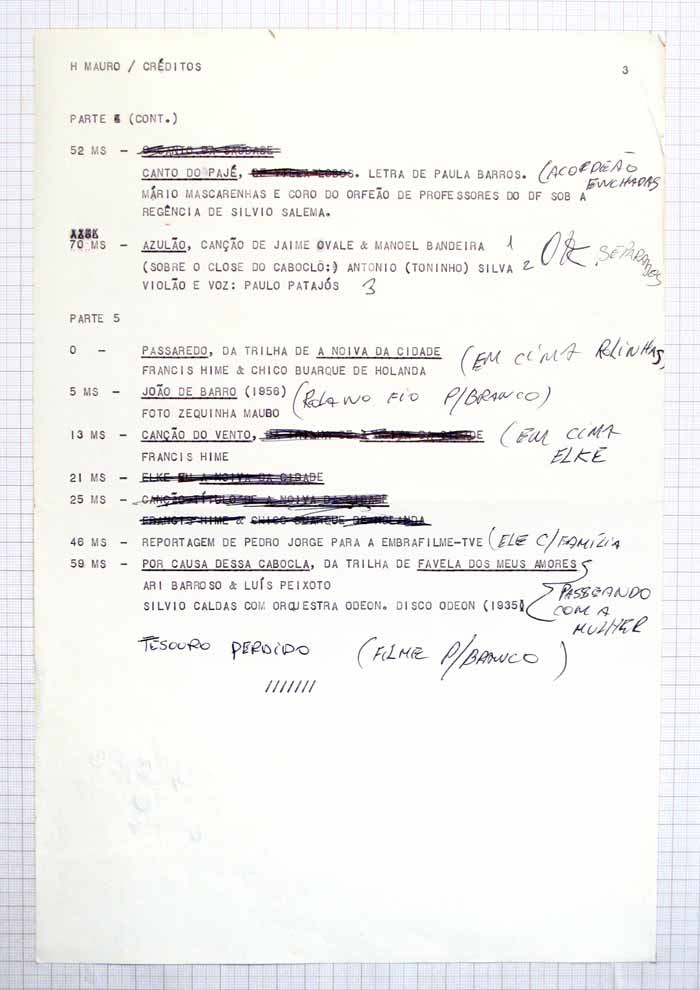 H MAURO / CRÉDITOS 3
PARTE 4 (CONT.)
52 MS – O CANTO DA SAUDADE
CANTO DO PAJÉ, DE VILLA LOBOS. LETRA DE PAULA BARROS. (ACORDEÃO
ENCHADAS
MÁRIO MASCARENHAS E CORO DO ORFEÃO DE PROFESSORES DO DF SOB A
REGÊNCIA DE SILVIO SALEMA.
70 MS – AZULÃO, CANÇÃO DE JAIME OVALE & MANOEL BANDEIRA 1
(SOBRE O CLOSE DO CABOCLO:) ANTONIO (TONINHO) SILVA 2 OK SEPARADOS
VIOLÃO E VOZ: PAULO PATAJÓS 3
PARTE 5
0 – PASSAREDO, DA TRILHA DE A NOIVA DA CIDADE (EM CIMA ROLINHAS,
FRANCIS HIME & CHICO BUARQUE DE HOLANDA
5 MS – JOÃO DE BARRO (1956) (ROLA NO FIO P/BRANCO)
FOTO ZEQUINHA MAURO
13 MS – CANÇÃO DO VENTO, DA TRILHA DE A NOIVA DA CIDADE (EM CIMA
ELKE
FRANCIS HIME
21 MS – ELKE EM A NOIVA DA CIDADE
25 MS – CANÇÃO TÍTULO DE A NOIVA DA CIDADE
FRANCIS HIME & CHICO BUARQUE DE HOLANDA
46 MS – REPORTAGEM DE PEDRO JORGE PARA A EMBRAFILME-TVE (ELE C/FAMÍLIA
59 MS – POR CAUSA DESSA CABOCLA, DA TRILHA DE FAVELA DOS MEUS AMORES
ARI BARROSO & LUÍS PEIXOTO PASSEANDO
SILVIO CALDAS COM ORQUESTRA ODEON. DISCO ODEON (1935) COM A
MULHER
TESOURO PERDIDO (FILME P/BRANCO)
///////